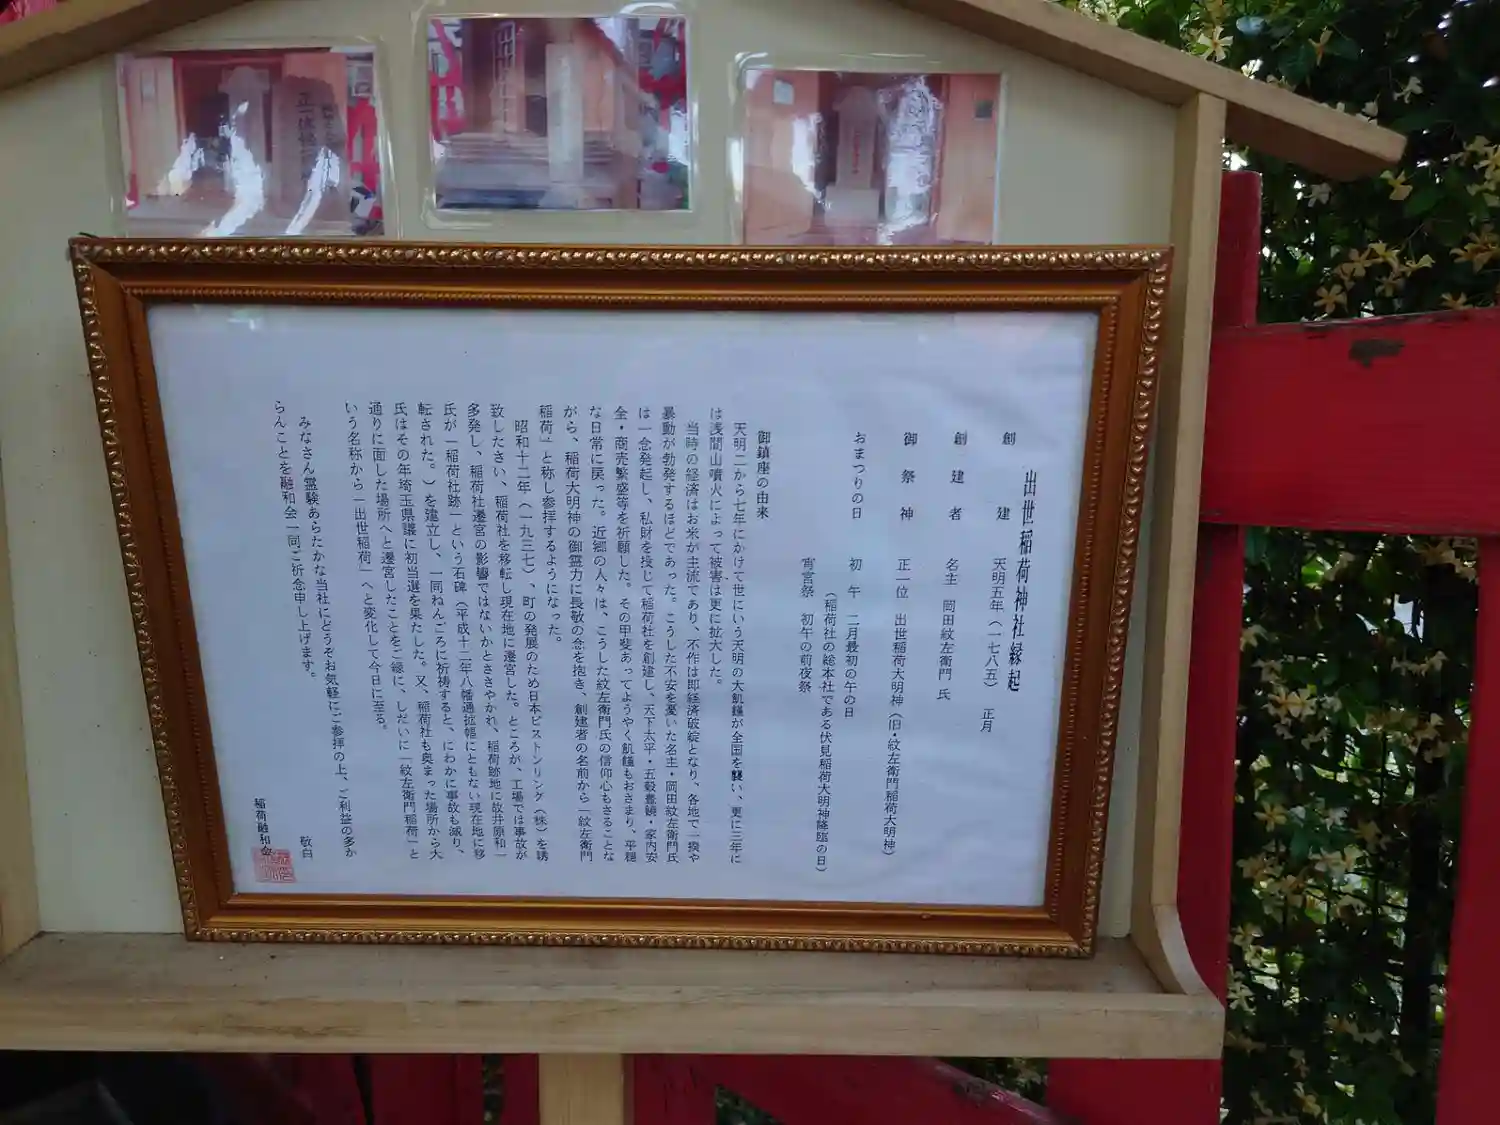 出世稲荷神社縁起
創建 天明五年（一七八五） 正月
創建者 名主 岡田紋左衛門 氏
御祭神 正一位 出世稲荷大明神（旧・紋左衛門稲荷大明神）
おまつりの日 初午 二月最初の午の日
（稲荷社の総本社である伏見稲荷大明神降臨の日）
宵宮祭 初午の前夜祭
御鎮座の由来
天明二から七年にかけて世にいう天明の大飢饉が全国を襲い、更に三年に
は浅間山噴火によって被害は更に拡大した。
当時の経済はお米が主流であり、不作は即経済破綻となり、各地で一揆や
暴動が勃発するほどであった。こうした不安を憂いた名主・岡田紋左衛門氏
は一念発起し、私財を投じて稲荷社を創建し、天下太平・五穀豊饒・家内安
全・商売繁盛等を祈願した。その甲斐あってようやく飢饉もおさまり、平穏
な日常に戻った。近郷の人々は、こうした紋左衛門氏の信仰心もさることな
がら、稲荷大明神の御霊力に長敬の念を抱き、創建者の名前から「紋左衛門
稲荷」と称し参拝するようになった。
昭和十二年（一九三七）、町の発展のため日本ピストンリング（株）を誘
致したさい、稲荷社を移転し現在地に遷宮した。ところが、工場では事故が
多発し、稲荷社遷宮の影響ではないかとささやかれ、稲荷跡地に故井原和一
氏が「稲荷社跡」という石碑（平成十二年八幡通拡幅にともない現在地に移
転された。）を建立し、一同ねんごろに祈祷すると、にわかに事故も減り、
氏はその年埼玉県議に初当選を果たした。又、稲荷社も奥まった場所から大
通りに面した場所へと遷宮したことをご縁に、しだいに「紋左衛門稲荷」と
いう名称から「出世稲荷」へと変化して今日に至る。
みなさん霊験あらたかな当社にどうぞお気軽にご参拝の上、ご利益の多か
らんことを融和会一同ご祈念申し上げます。
敬白
稲荷融和会